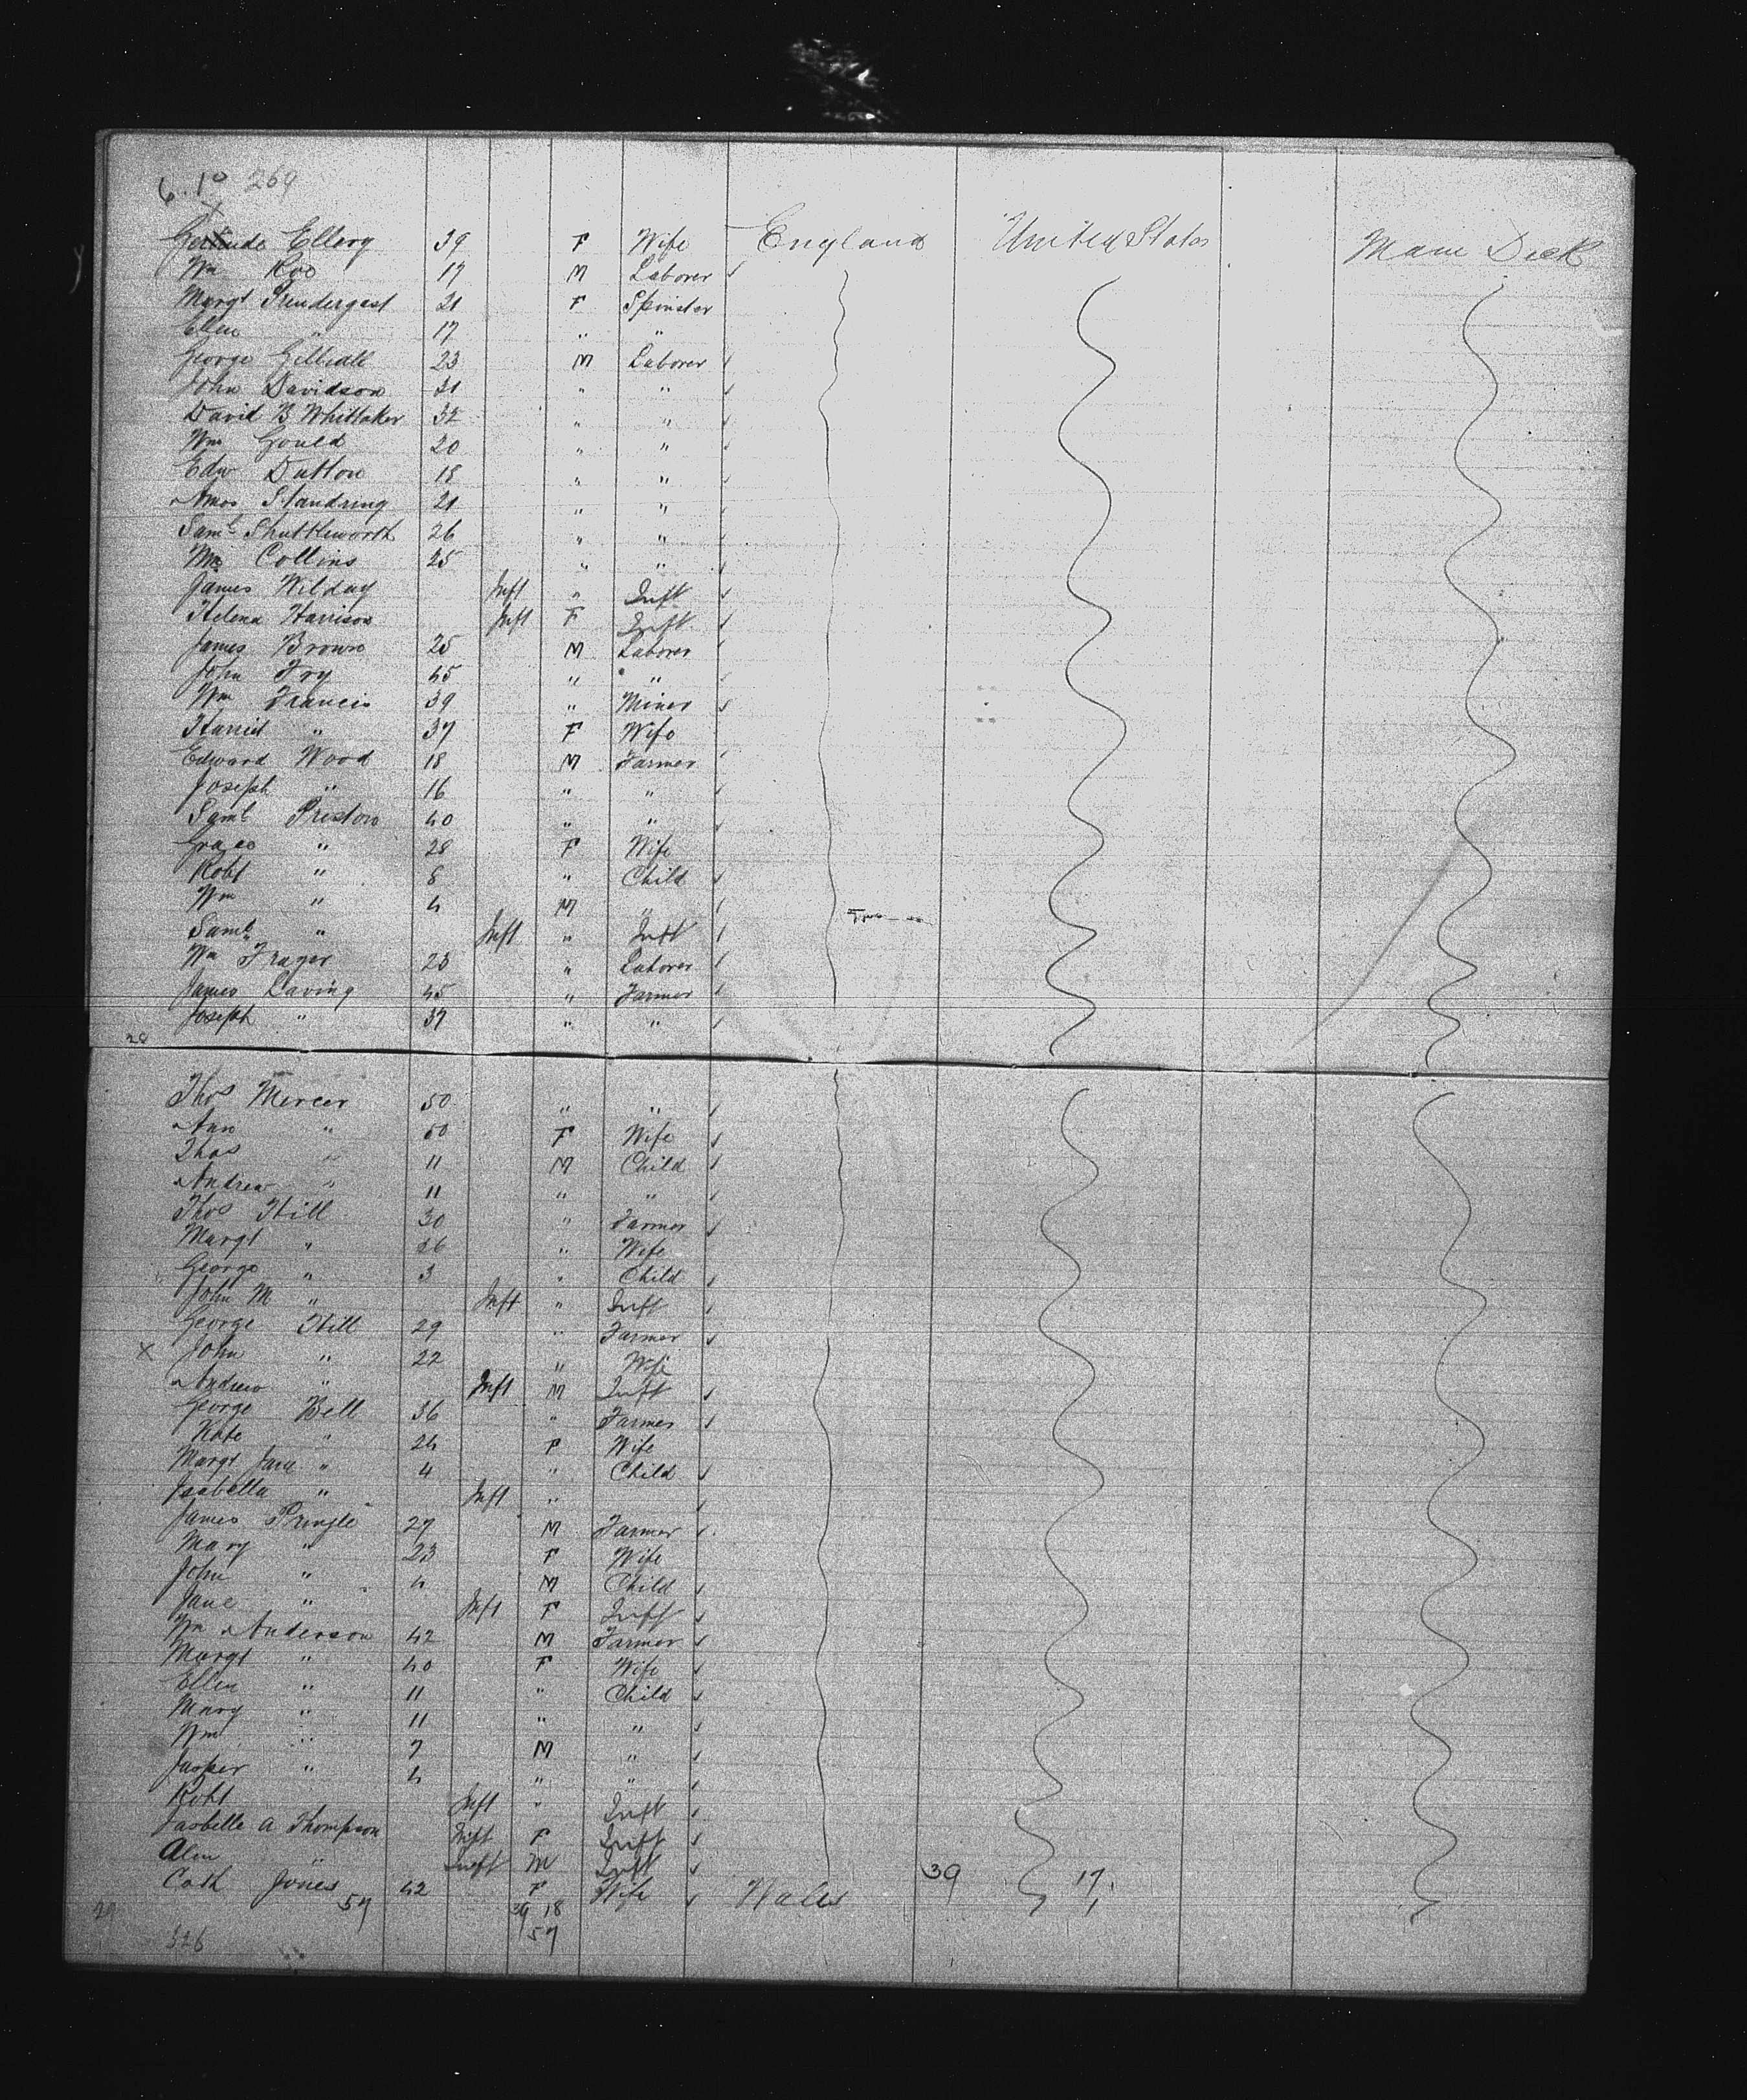 6. 10 269
Gertrude Ellery 39 F Wife England United States Main Deck
Wm Roo 17 M Laborer
Margt Prendergast 21 F Spinster
Ellen " 17 " "
George 23 M Laborer
John Davidson 21 " "
David B Whittaker 32 " "
Wm Gould 20 " "
Edw Dutton 18 " "
Amos Standring 21 " "
Saml Shuttleworth 26 " "
Wm Collins 25 " "
James Wilday Inft " Inft
Helena Harrison Inft F Inft
James Brown 25 M Laborer
John Fry 45 " "
Wm Francis 39 " Miner
Harriet " 37 F Wife
Edward Wood 18 M Farmer
Joseph " 16 " "
Saml Preston 40 " "
Grace " 28 F Wife
Robt " 8 " Child
Wm " 4 M "
Saml " Inft " Inft
Wm Frazer 23 " Laborer
James Laving 45 " Farmer
Joseph " 37 " "
28
Thos Mercer 50 " "
Ann " 50 F Wife
Thos " 11 M Child
Andrew " 11 " "
Thos Hill 30 " Farmer
Margt " 26 " Wife
George " 3 " Child
John M " Inft " Inft
George Hill 29 " Farmer
X John " 22 " Wife
Andrew " Inft M Inft
George Bell 36 " Farmer
Kate " 24 F Wife
Margt Jane " 4 " Child
Isabella " Inft "
James Pringle 27 M Farmer
Mary " 23 F Wife
John " 4 M Child
Jane " Inft F Inft
Wm Anderson 42 M Farmer
Margt " 40 F Wife
Ellen " 11 " Child
Mary " 11 " "
Wm " 7 M "
Jasper " 4 " "
Robt Inft " Inft
Isabella A Thompson Inft F Inft
Alex " Inft M Inft 39 17
Cath Jones 42 F Wife Wales 1
57 39 18
29 57
326